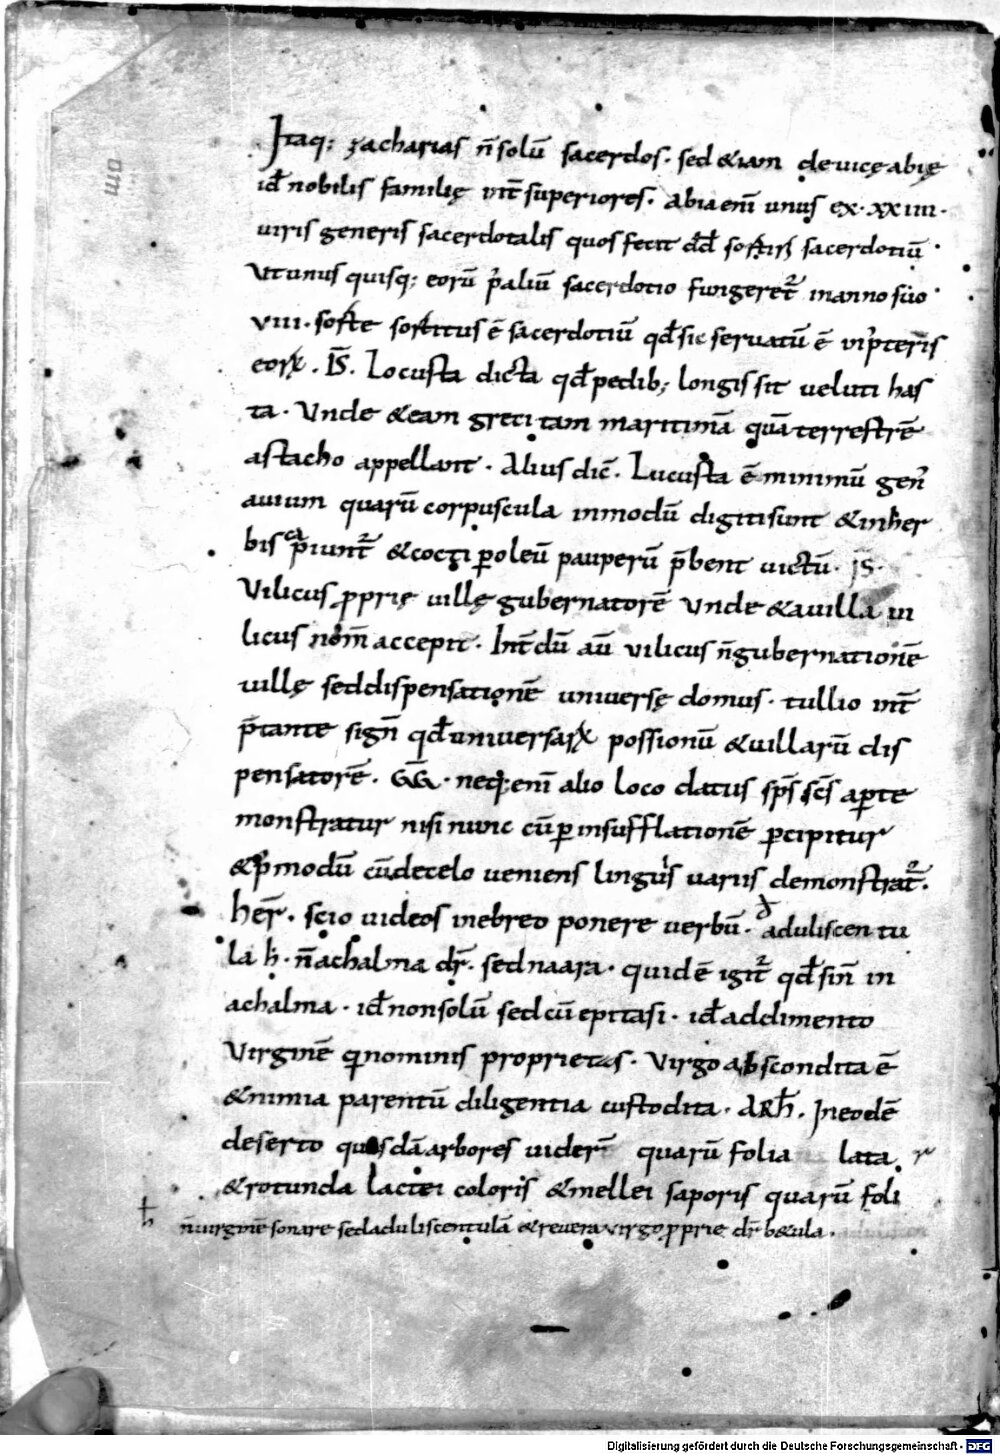 Itaq; zacharias n̄ solū sacerdos. sed &iam de uicę abię
id̄ nobilis familię int̄ superiores. abia enī unus ex. xxiiii.
uiris generis sacerdotalis quos fecit dd̄ sortiri sacerdotiū.
Vt unus quisq; eorū p aliū sacerdotio fungeret̄ in anno suo
viii. sorte sortitus ē sacerdotiū qd̄ sic seruatū ē
eorꝝ. IS̄. Locusta dicta qd̄ pedib; longis sit ueluti has
ta. Vnde & eam greci tam maritimā quā terrestrē
astacho appellant. Alius dic̄. Lucusta ē minimū gen̄
auium quarū corpuscula in modū digiti sunt & in her
bis capiunt̄ & cocti p oleū pauperū p̄bent uictū. IS.
Vilicus pprię uillę gubernatorē Vnde & a uilla ui
licus nom̄ accepit. Int̄dū aū vilicus n̄ gubernationē
uillę sed dispensationē universę domus. tullio int̄
p̄tante sign̄ qd̄ universarꝝ possionū & uillarū dis
pensatorē. GG. neq; enī alio loco datus sp̄s sc̄s apte
monstratur nisi nunc cū p insufflationē pcipitur
& p modū cū de celo ueniens linguis uariis demonstrat̄.
her̄. scio uideos in ebreo ponere uerbū. d̄ aduliscentu
la h. n̄ achalma dr̄. sed naara. quid ē igit̄ qd̄ sin̄ in
achalma. id̄ non solū sed cū epitasi. id̄ addimento
Virginē qi nominis proprietas. Virgo abscondita ē
& nimia parentū diligentia custodita. ARh̄. In eodē
deserto quasdā arbores uider̄ quarū folia lata
& rotunda lactei coloris & mellei saporis quarū foli
n̄ virginē sonare sed aduliscentulā & revera virgo pprie dr̄ b&ula.
Digitalisierung gefördert durch die Deutsche Forschungsgemeinschaft - DFG